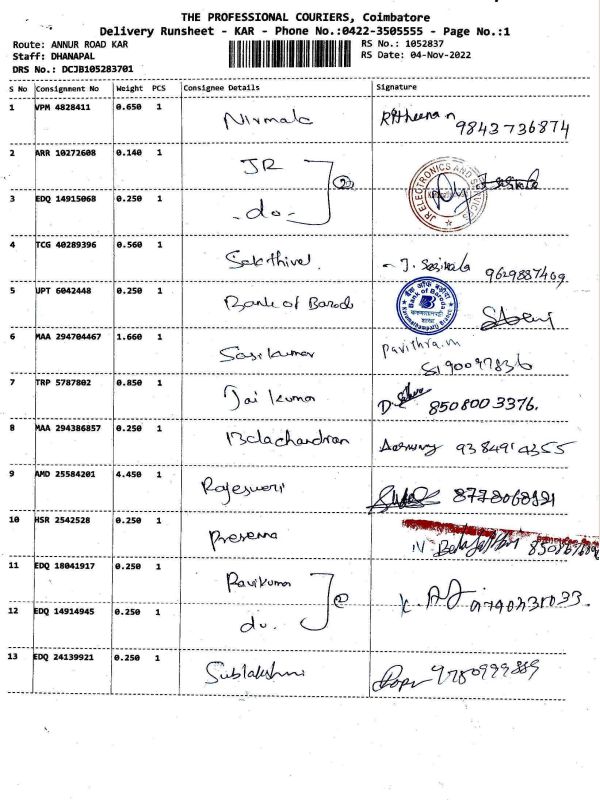 THE PROFESSIONAL COURIERS, Coimbatore
Delivery Runsheet - KAR - Phone No.:0422-3505555 - Page No.:1
Route: ANNUR ROAD KAR
Staff: DHANAPAL
DRS No.: DCJB105283701
RS No.: 1052837
RS Date: 04-Nov-2022
S No Consignment No Weight PCS Consignee Details Signature
1 VPM 4828411 0.650 1 Nirmala 9843736874
2 ARR 10272608 0.140 1 JR
JR ELECTRONICS AND SERVICES
3 EDQ 14915068 0.250 1 -do-
4 TCG 40289396 0.560 1 Sakthivel J. Sasikala 9629887409
5 UPT 6042448 0.250 1 Bank of Baroda
बैंक ऑफ़ बड़ौदा
Bank of Baroda
6 MAA 294704467 1.660 1 Sasikumar Pavithra.m
7 TRP 5787802 0.850 1 Jai kumar 8508003376.
8 MAA 294386857 0.250 1 Balachandran
9 AMD 25584201 4.450 1 Rajesweri
10 HSR 2542528 0.250 1 Presenna
11 EDQ 18041917 0.250 1 Ravikumar
12 EDQ 14914945 0.250 1 do.
13 EDQ 24139921 0.250 1 Sublakshmi